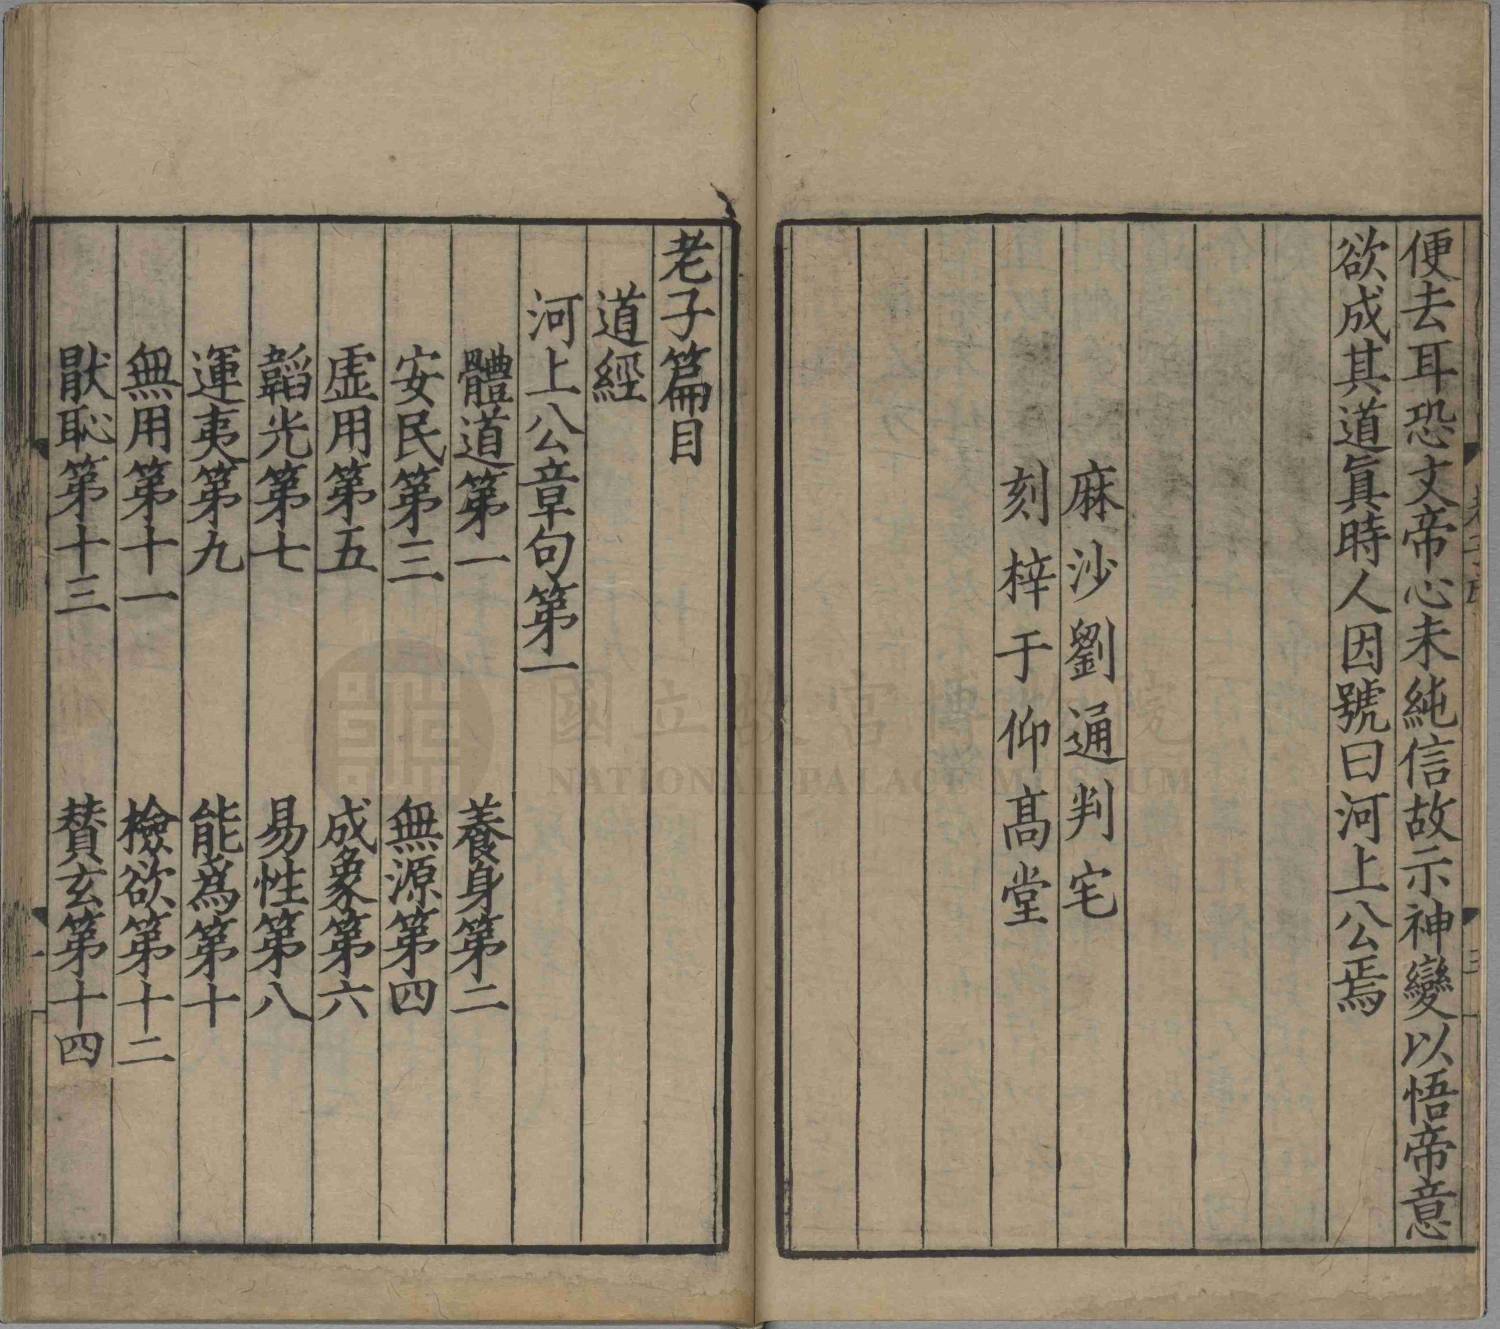 便去耳恐文帝心未純信故示神變以悟帝意
欲成其道眞時人因號曰河上公焉
麻沙劉通判宅
刻梓于仰高堂
老子篇目
道經
河上公章句第一
體道第一 養身第二
安民第三 無源第四
虛用第五 成象第六
韜光第七 易性第八
運夷第九 能爲第十
無用第十一 檢欲第十二
猒恥第十三 賛玄第十四
國立故宮博物院
NATIONAL PALACE MUSEUM